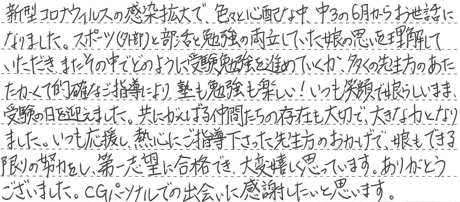 新型コロナウィルスの感染拡大で、色々と心配な中、中3の6月からお世話に
なりました。スポーツ(外部)と部活と勉強の両立していた娘の思いを理解して
いただき、またその中でどのように受験勉強を進めていくか、多くの先生方のあた
たかくて的確なご指導により、塾も勉強も楽しい!いつも笑顔で娘らしいまま、
受験の日を迎えました。共にがんばる仲間たちの存在も大切で、大きな力となり
ました。いつも応援し、熱心にご指導下さった先生方のおかげで、娘もできる
限りの努力をし、第一志望に合格でき、大変嬉しく思っています。ありがとう
ございました。CGパーソナルでの出会いに感謝したいと思います。